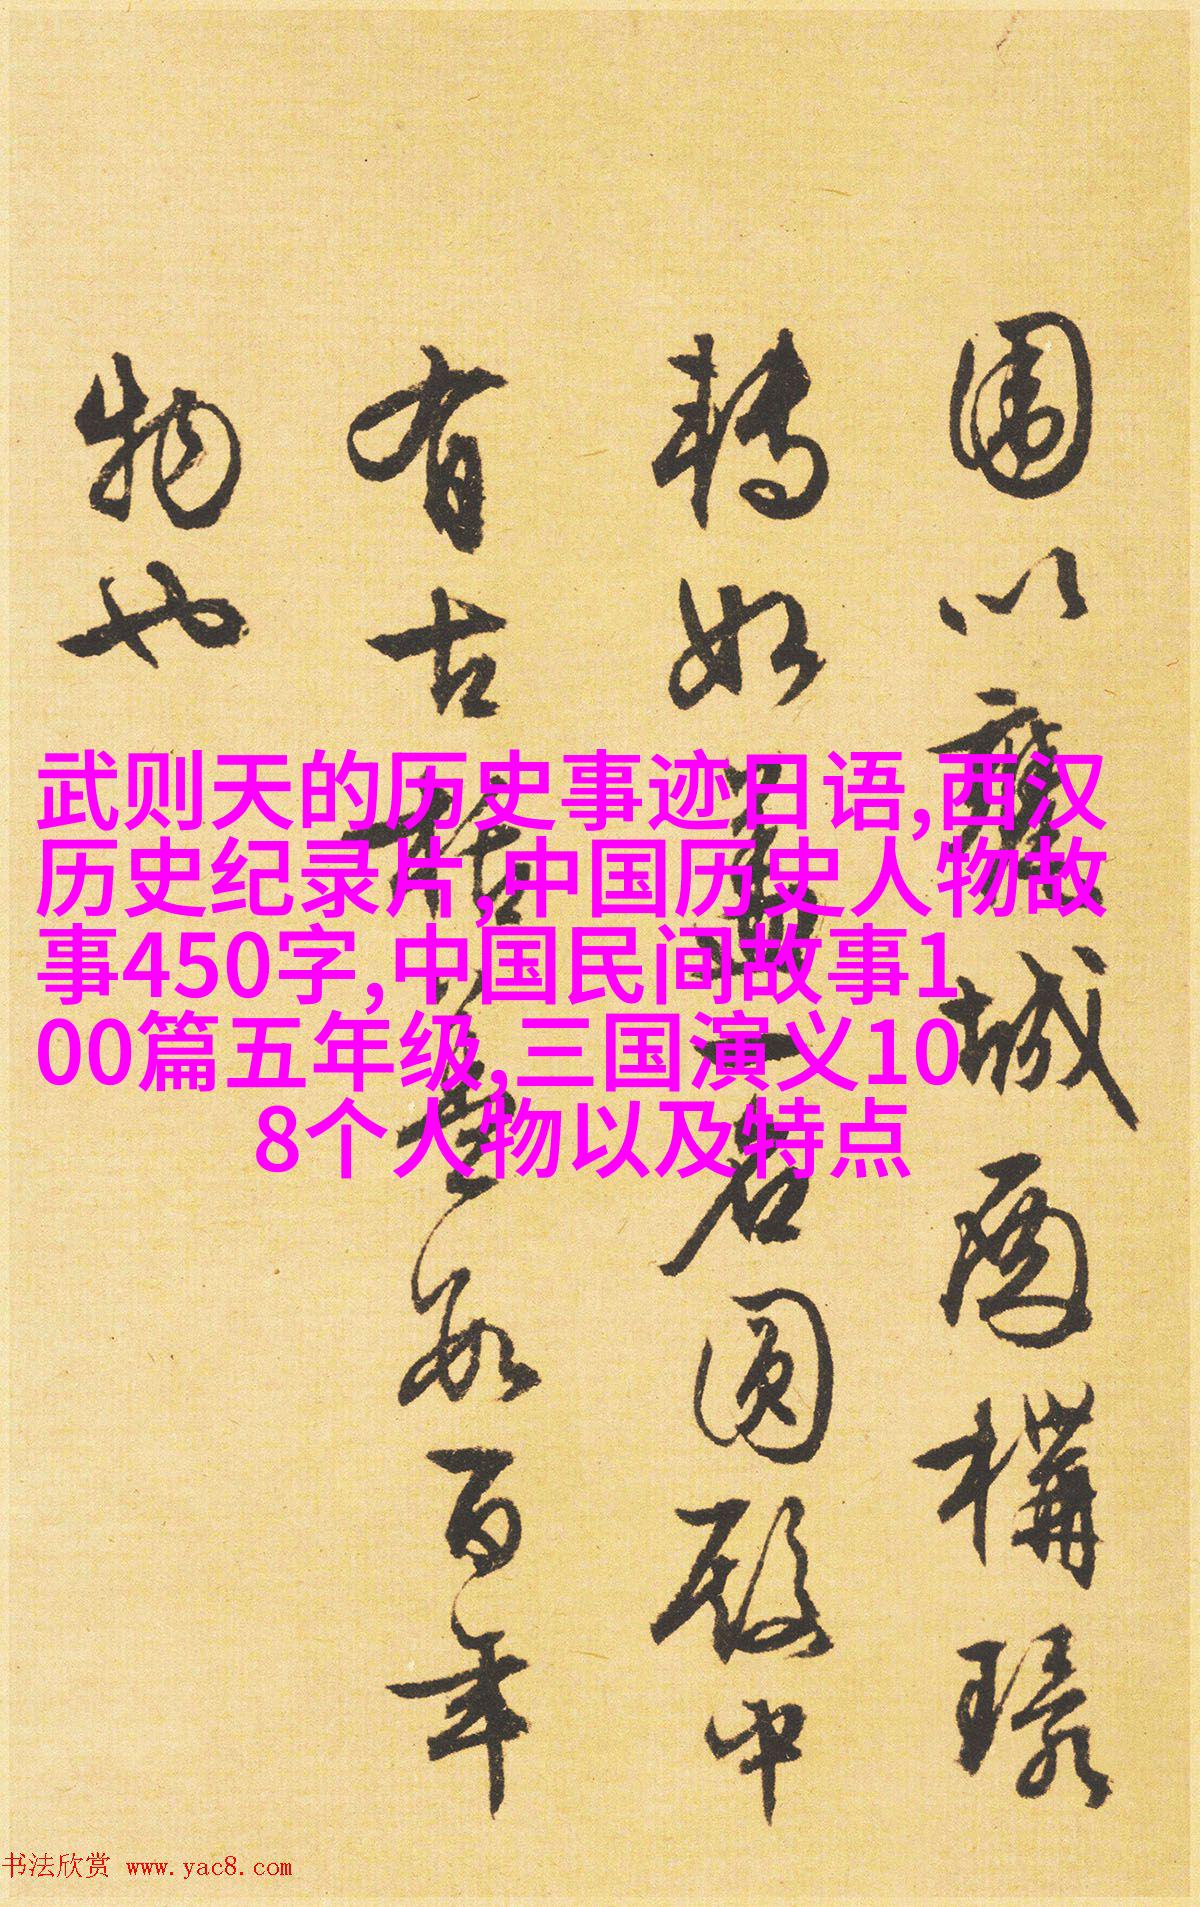 圍以甕城兩構環
轉如蓋一名圓殿中
有古栝蓋數百年
物也
武则天的历史事迹日语,西汉
历史纪录片,中国历史人物故
事450字,中国民间故事1
00篇五年级,三国演义10
8个人物以及特点
书法欣赏 www.yac8.com